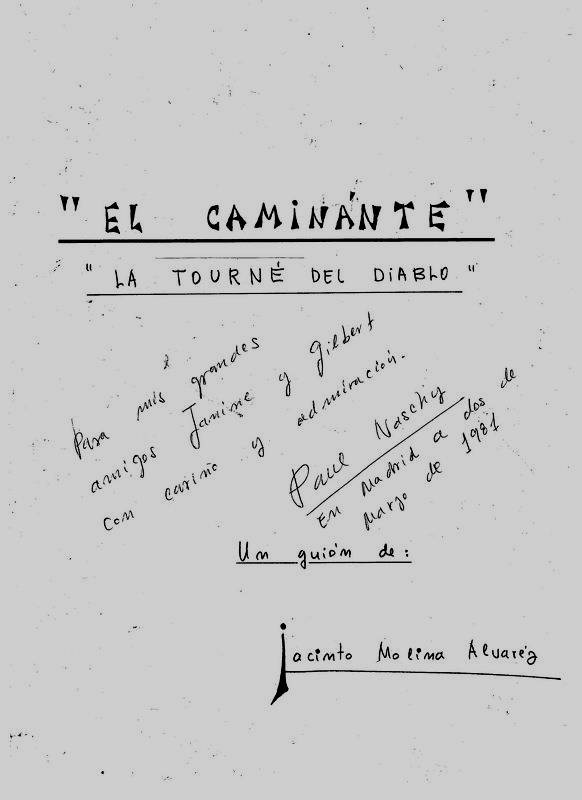 "EL CAMINÁNTE"
"LA TOURNÉ DEL DIABLO"
Para mis grandes
amigos Janine y Gilbert
con cariño y admiración.
Paul Naschy
En Madrid a dos de
Marzo de 1981
Un guión de:
Jacinto Molina Alvaréz